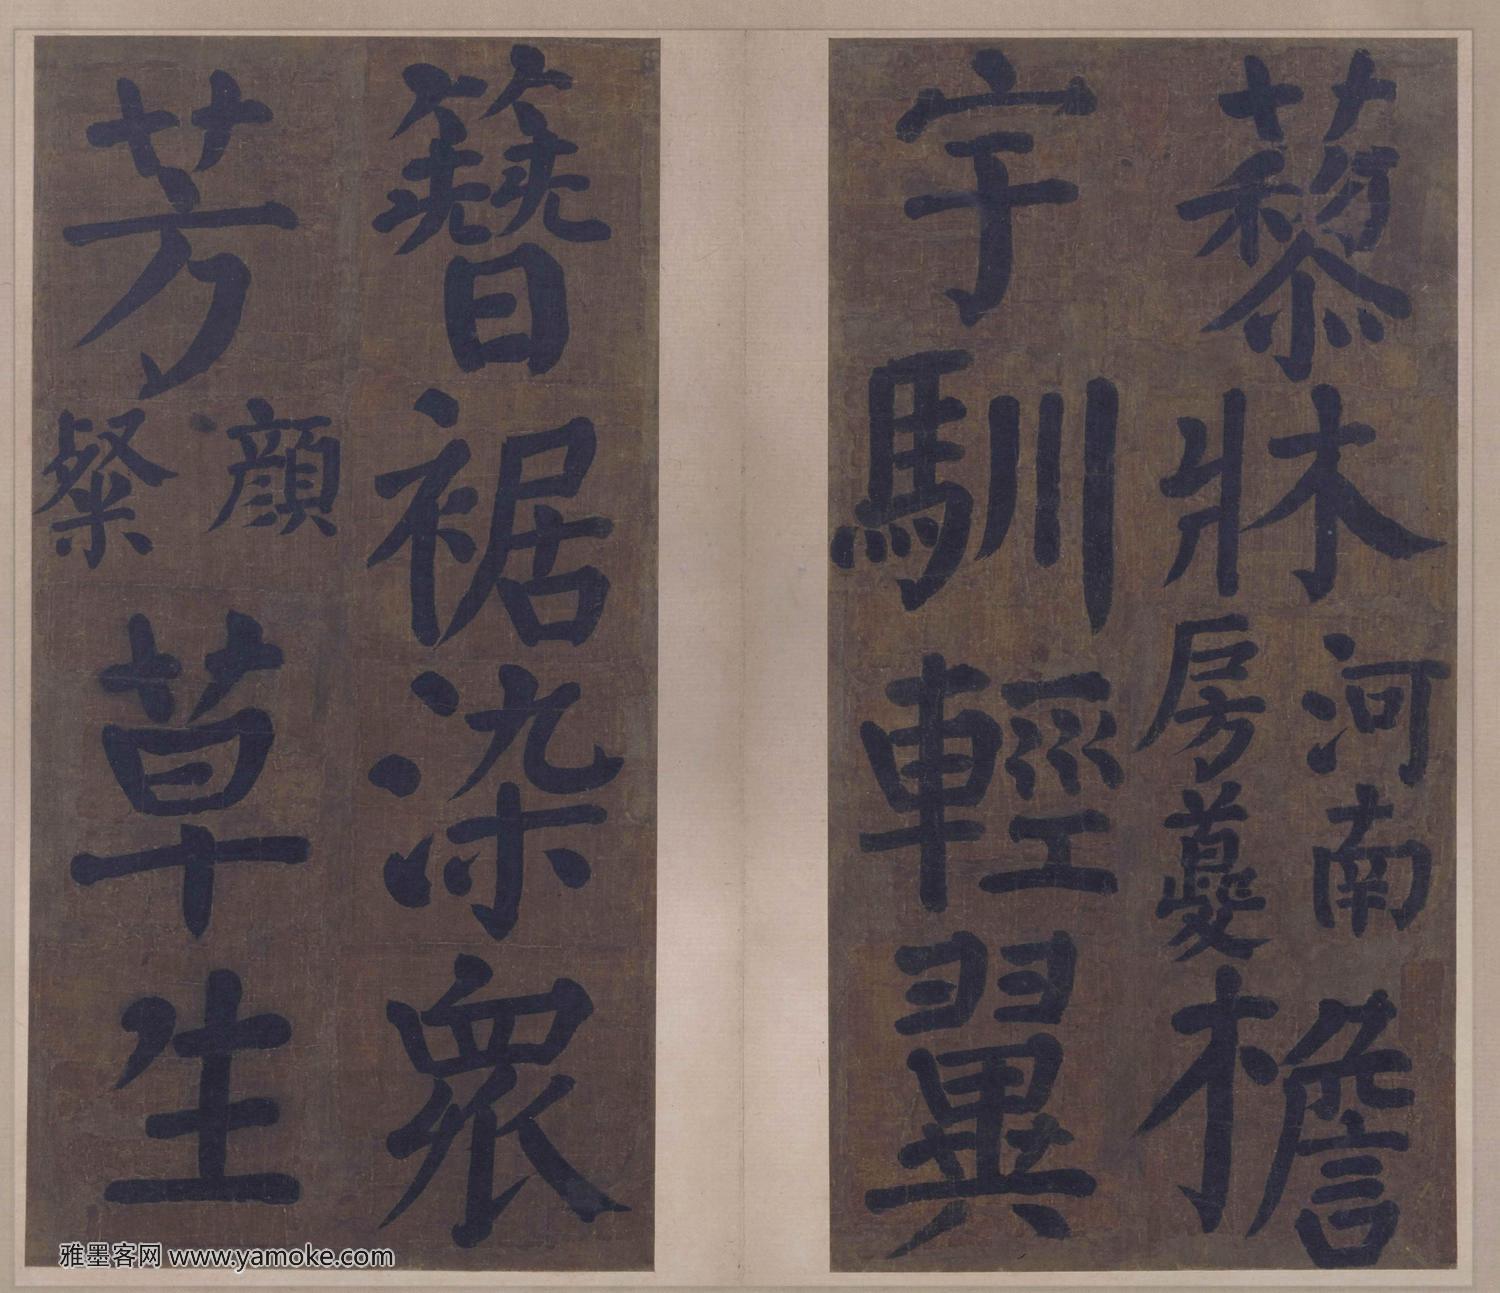 藜牀河南房夔檐
宇馴輕翼
簪裾染衆
芳顏粲草生
雅墨客网 www.yamoke.com